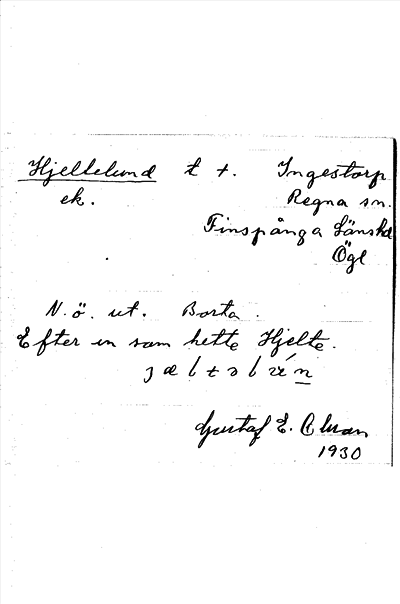 Hjeltelund t +. Ingestorp
ek. Regna sn.
Finspånga Länshd
Ögl
N. ö. ut. Borta.
Efter en som hette Hjelte.
Gustaf E.
1930